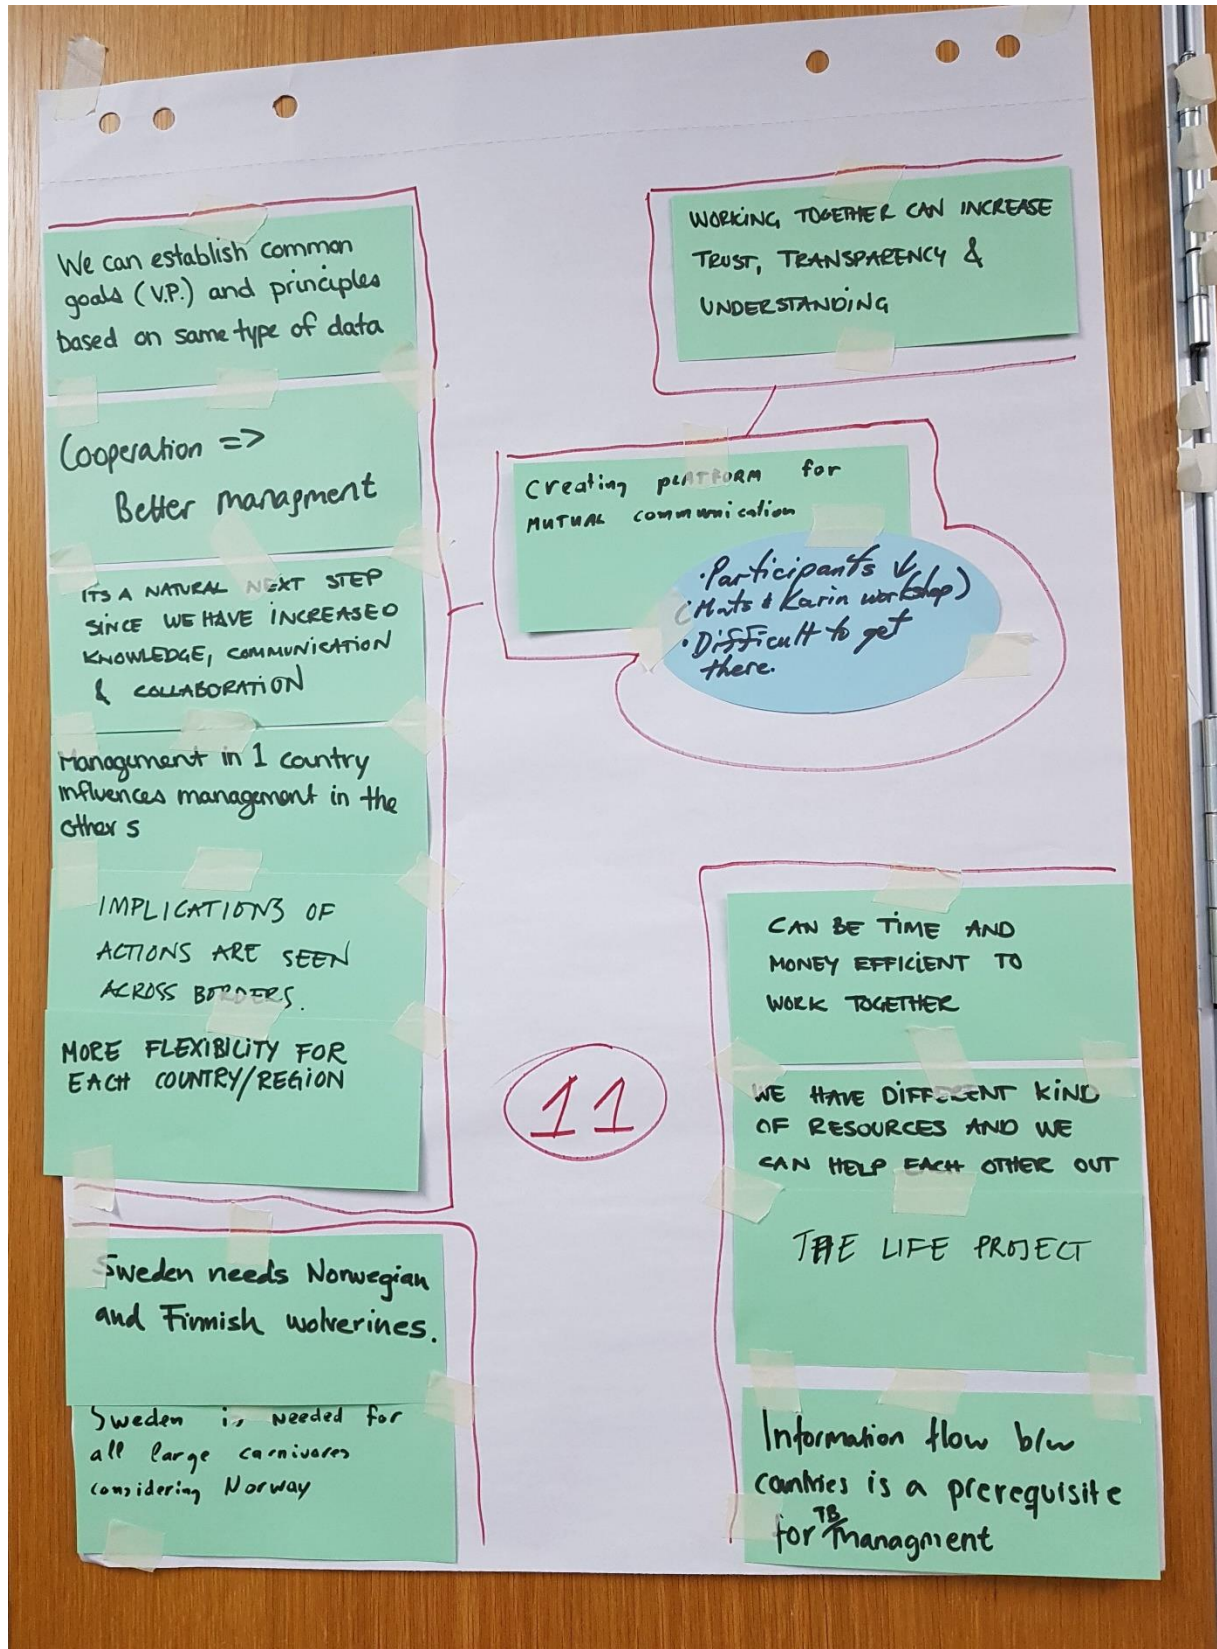 We can establish common
goals (V.P.) and principles
based on same type of data
Cooperation =>
Better managment
ITS A NATURAL NEXT STEP
SINCE WE HAVE INCREASED
KNOWLEDGE, COMMUNICATION
& COLLABORATION
Management in 1 country
influences management in the
other s
IMPLICATIONS OF
ACTIONS ARE SEEN
ACROSS BORDERS.
MORE FLEXIBILITY FOR
EACH COUNTRY/REGION
Sweden needs Norwegian
and Finnish wolverines.
Sweden is needed for
all large carnivores
considering Norway
WORKING TOGETHER CAN INCREASE
TRUST, TRANSPARENCY &
UNDERSTANDING
Creating PLATFORM for
MUTUAL communication
• Participants ↓
(Mats & Karin workshop)
• Difficult to get
there.
11
CAN BE TIME AND
MONEY EFFICIENT TO
WORK TOGETHER
WE HAVE DIFFERENT KIND
OF RESOURCES AND WE
CAN HELP EACH OTHER OUT
THE LIFE PROJECT
Information flow b/w
countries is a prerequisite
for TB managment